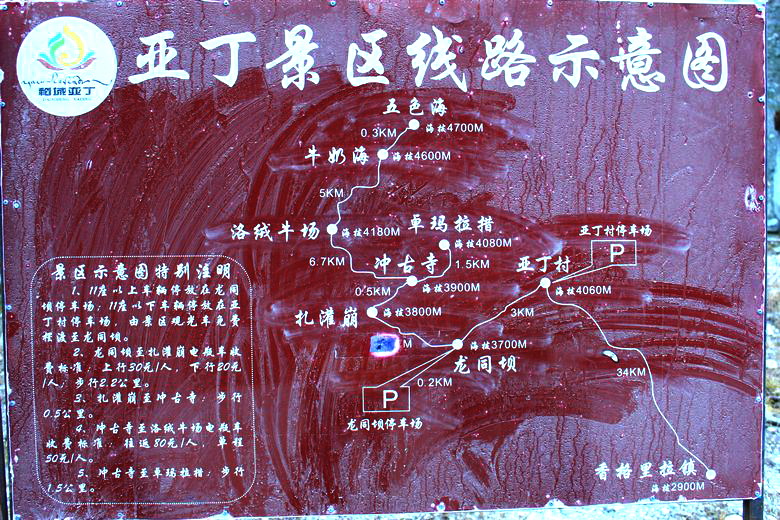 亚丁景区线路示意图
稻城亚丁
五色海
0.3KM
海拔4700M
牛奶海
海拔4600M
5KM
洛绒牛场
海拔4180M
卓玛拉措
海拔4080M
亚丁村停车场
P
6.7KM
冲古寺
1.5KM
亚丁村
0.5KM
海拔3900M
海拔4060M
扎灌崩
海拔3800M
3KM
M
海拔3700M
龙同坝
34KM
0.2KM
P
龙同坝停车场
香格里拉镇
海拔2900M
景区示意图特别注明
1、11座以上车辆停放在龙同
坝停车场；11座以下车辆停放在亚
丁村停车场，由景区观光车免费
摆渡至龙同坝。
2、龙同坝至扎灌崩电瓶车收
费标准：上行30元/人，下行20元
/人；步行2.2公里。
3、扎灌崩至冲古寺：步行
0.5公里。
4、冲古寺至洛绒牛场电瓶车
收费标准：往返80元/人，单程
50元/人。
5、冲古寺至卓玛拉措：步行
1.5公里。